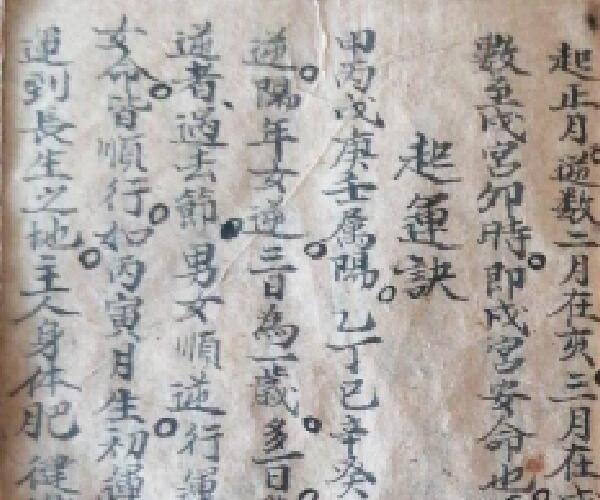 起正月逆数二月在亥三月在
数至戌宮卯時即戌宮安命也
起運訣
甲丙戊庚壬属陽乙丁己辛癸
逆陽年女逆三日為一歲多一日
逆者過去節男女順逆行運
女命皆順行如丙寅月生初運
運到長生之地主人身体肥健